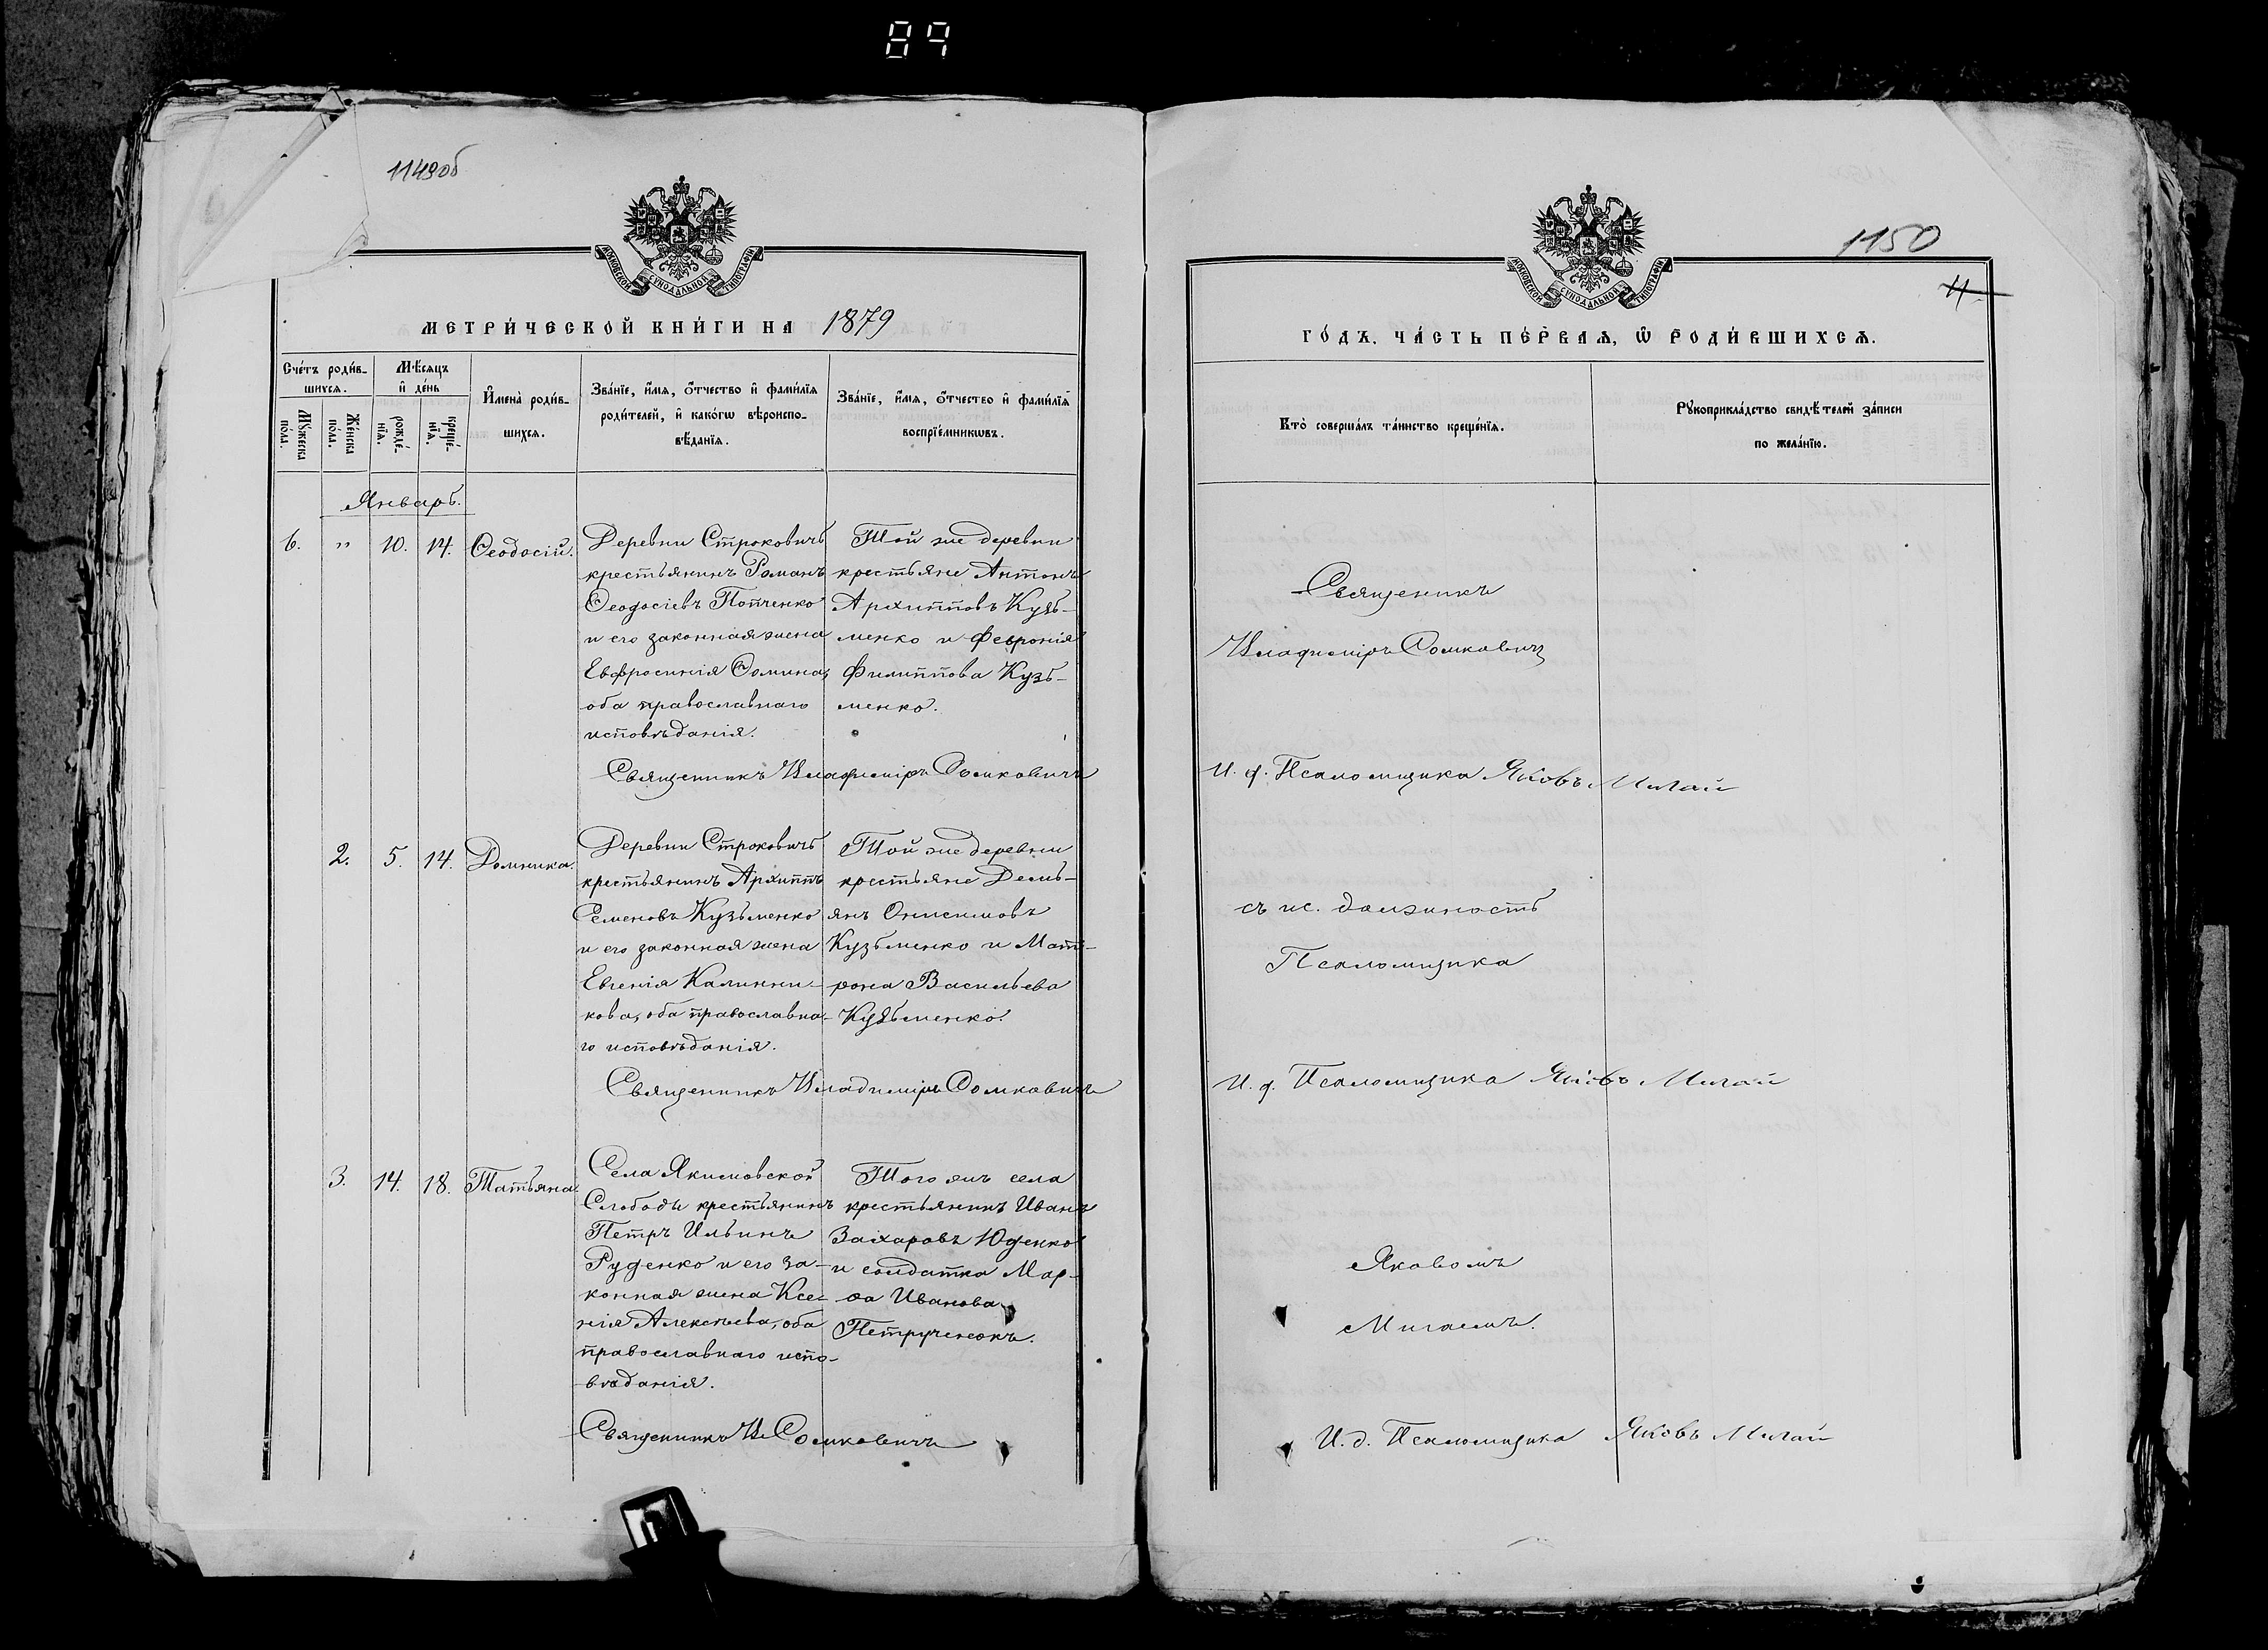 89
1149об
МОСКОВСКОЙ СѴНОДАЛЬНОЙ ТИПОГРАФІИ
МЕТРИ́ЧЕСКОЙ КНИ́ГИ НА 1879
Сче́тъ роди́в-
шихся.
Мѣ́сяцъ
и҆ де́нь
Мꙋ́жеска
по́ла.
Же́нска
по́ла.
рожде́-
нїя.
креще́-
нїя.
И҆мена̀ роди́в-
шихся.
Зва́нїе, и҆́мя, ѻ҆́тчество и҆ фами́лїя
роди́телей, и҆ како́гѡ вѣроиспо-
вѣ́данїя.
Зва́нїе, и҆́мя, ѻ҆́тчество и҆ фами́лїя
воспрїе́мникѡвъ.
Январь.
6. " 10. 14. Ѳеодосій.
Деревни Строковичь
крестьянинъ Романъ
Ѳеодосіевъ Попченко
и его законная жена
Евфросинія Ѳомина,
оба православнаго
исповѣданія.
Той же деревни
крестьяне Антонъ
Архипповъ Кузь-
менко и Февронія
Филиппова Кузь-
менко.
Священникъ Владиміръ Сомковичъ
2. 5. 14. Домника.
Деревни Строковичь
крестьянинъ Архиппъ
Семеновъ Кузьменко
и его законная жена
Евгенія Калинни-
кова, оба православна-
го исповѣданія.
Той же деревни
крестьяне Демь-
янъ Онисимовъ
Кузьменко и Мат-
рона Васильева
Кузьменко.
Священникъ Владиміръ Сомковичъ
3. 14. 18. Татьяна.
Села Якимовской
Слободы крестьянинъ
Петръ Ильинъ
Руденко и его за-
конная жена Ксе-
нія Алексѣева, оба
православнаго испо-
вѣданія.
Того жъ села
крестьянинъ Иванъ
Захаровъ Юденко
и солдатка Мар-
ѳа Иванова
Петрученокъ.
Священникъ Вл Сомковичъ
1150
4.
МОСКОВСКОЙ СѴНОДАЛЬНОЙ ТИПОГРАФІИ
ГО́ДЪ, ЧА́СТЬ ПЕ́РВАЯ, Ѡ҆ РОДИ́ВШИХСЯ.
Кто̀ соверша́лъ та́инство креще́нїя.
Рꙋкоприкла́дство свидѣ́телей за́писи
по жела́нїю.
Священикъ
Владиміръ Сомковичъ
И. д. Псаломщика Яковъ Мигай
съ ис. должность
Псаломщика
И. д. Псаломщика Яковъ Мигай
Яковомъ
Мигаемъ.
И. д. Псаломщика Яковъ Мигай